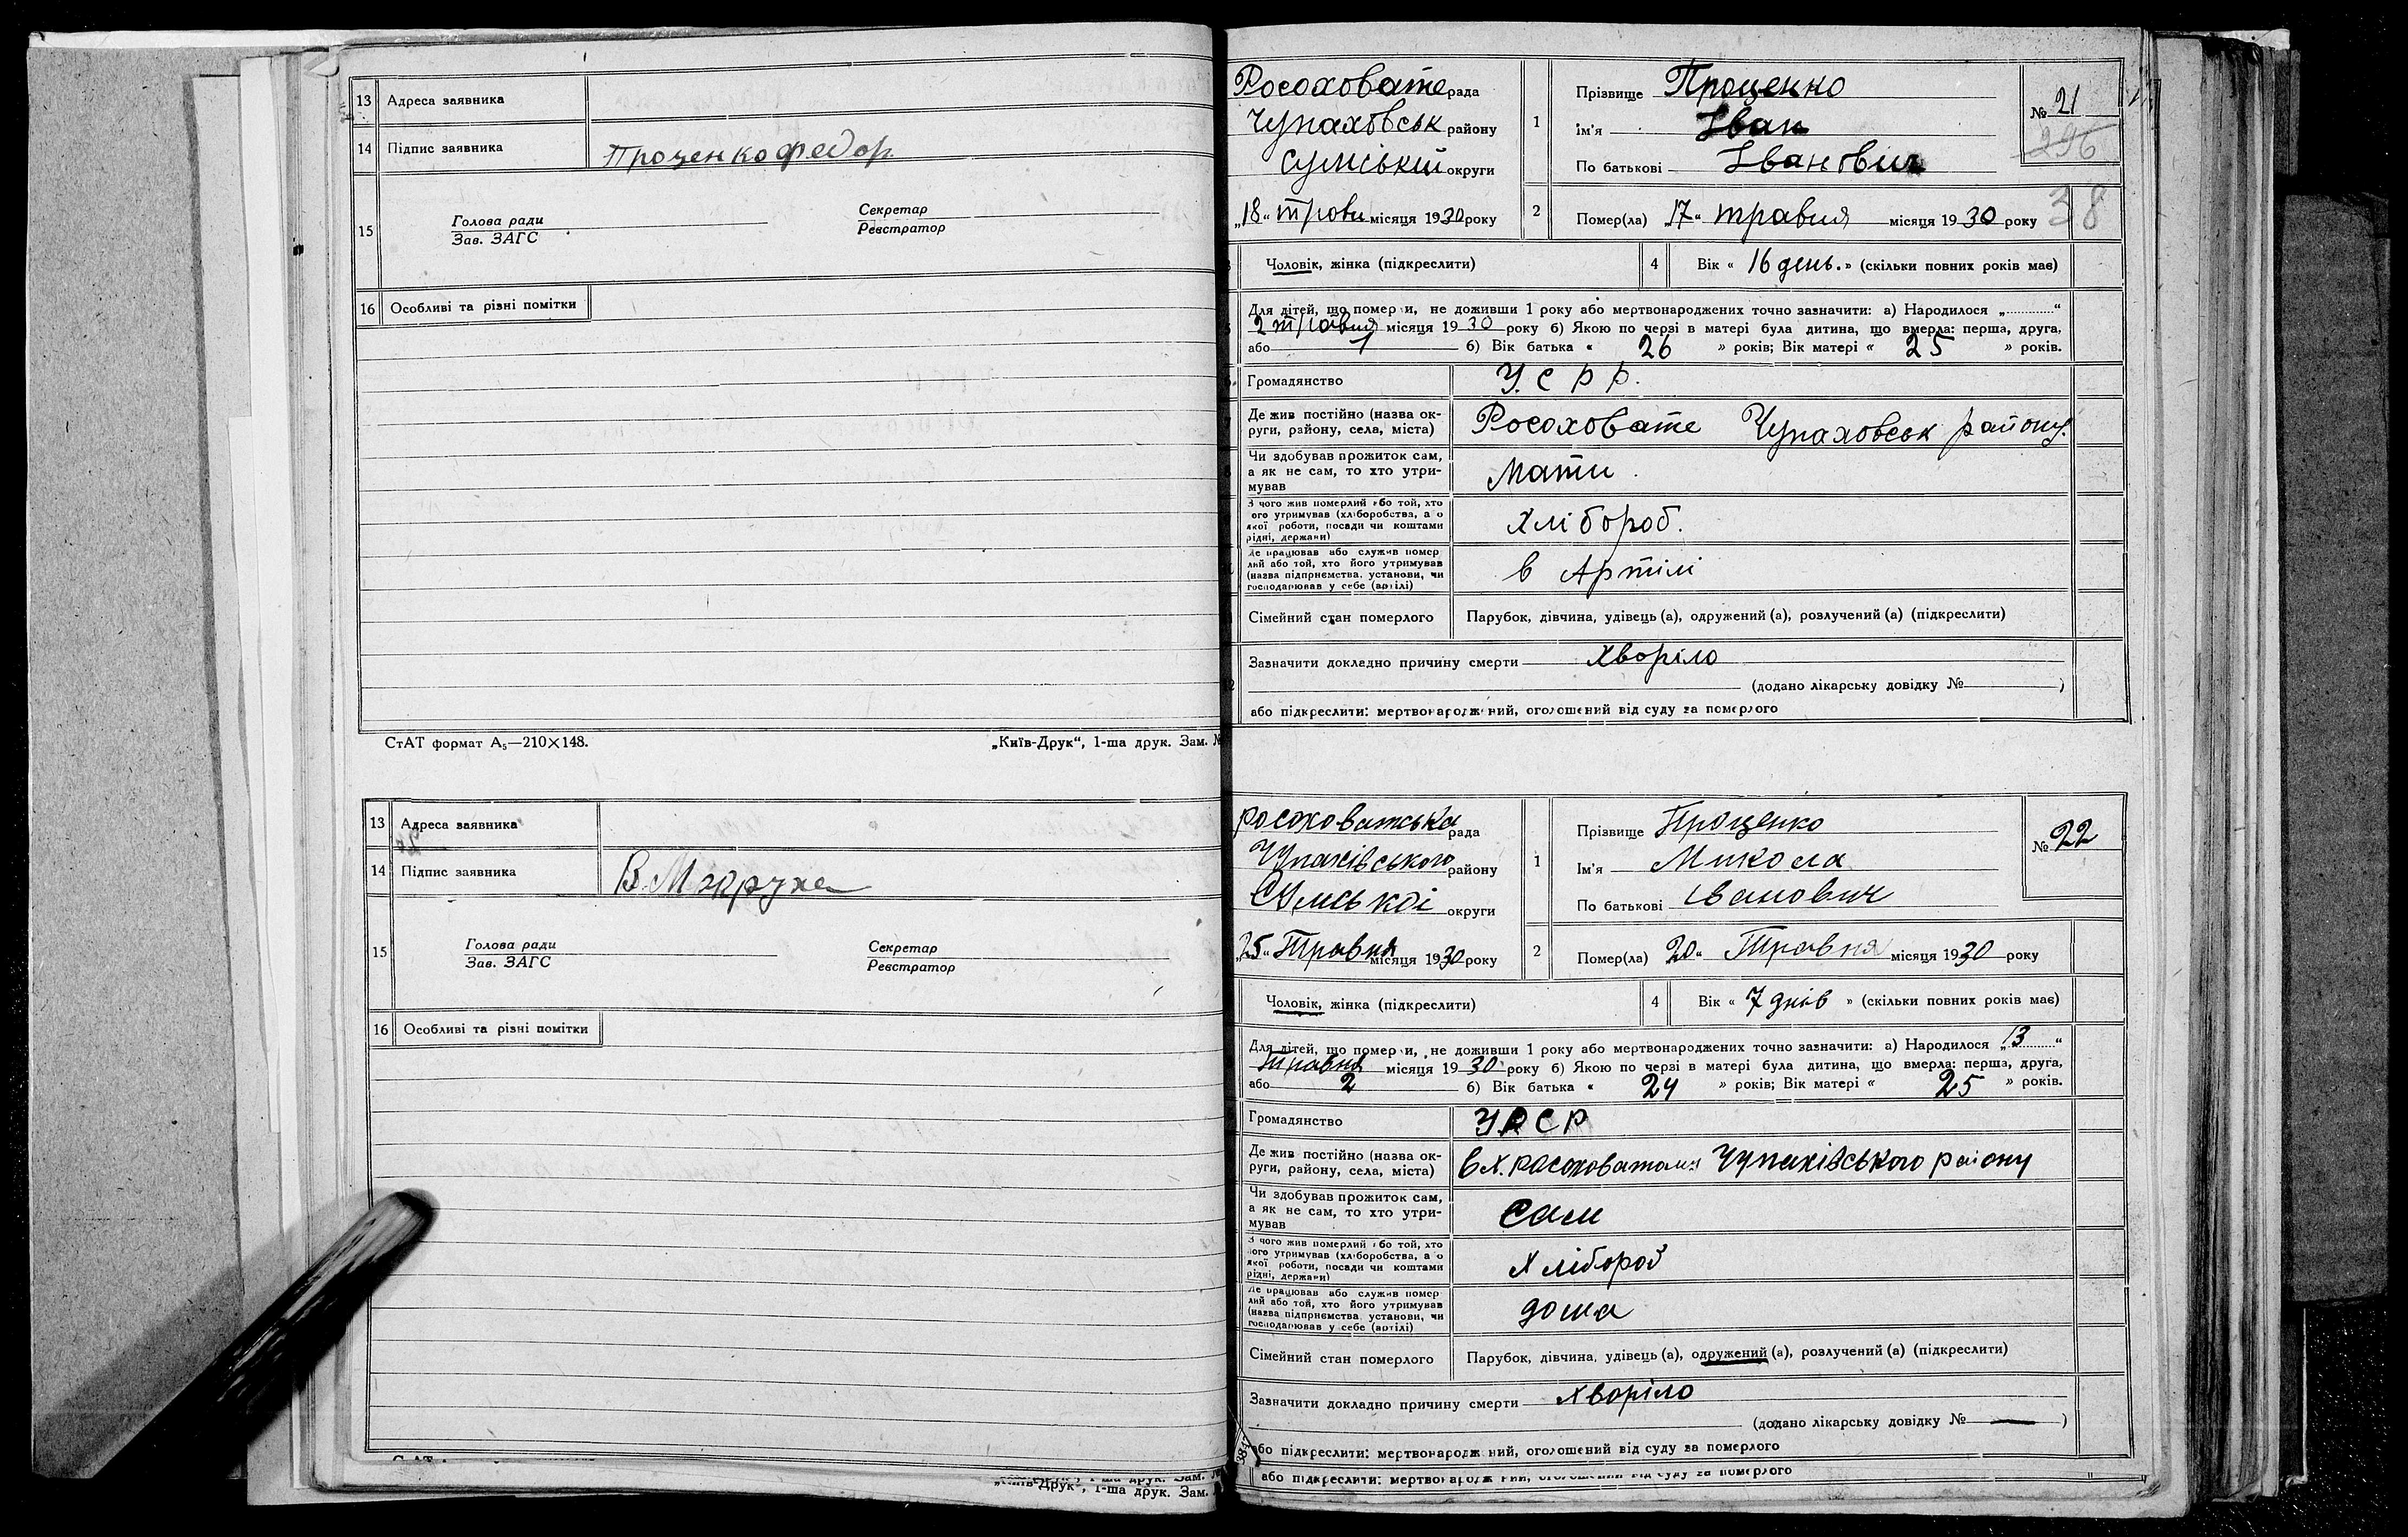 13 Адреса заявника
14 Підпис заявника Проценко Федор.
15 Голова ради Секретар
Зав. ЗАГС Реєстратор
16 Особливі та різні помітки
СтАТ формат А₅—210×148. „Київ-Друк“, 1-ша друк. Зам. №
13 Адреса заявника
14 Підпис заявника
15 Голова ради Секретар
Зав. ЗАГС Реєстратор
16 Особливі та різні помітки
„Київ-Друк“, 1-ша друк. Зам.
Росоховате рада
Чупаховськ району
Сумській округи
„18“ травн місяця 1930 року
1 Прізвище Проценко
Ім'я Іван
По батькові Іванович
№ 21
296
2 Помер(ла) „17“ травня місяця 1930 року
38
Чоловік, жінка (підкреслити) 4 Вік « 16 день. » (скільки повних років має)
Для дітей, що померли, не доживши 1 року або мертвонароджених точно зазначити: а) Народилося „ “
2 травня місяця 1930 року б) Якою по черзі в матері була дитина, що вмерла: перша, друга,
або 1 б) Вік батька « 26 » років; Вік матері « 25 » років.
Громадянство У.С.Р.Р.
Де жив постійно (назва ок-
руги, району, села, міста) Росоховате Чупаховськ району.
Чи здобував прожиток сам,
а як не сам, то хто утри-
мував Мати.
З чого жив померлий або той, хто
його утримував (хліборобства, а о
якої роботи, посади чи коштами
рідні, держави) Хлібороб.
Де працював або служив помер
лий або той, хто його утримував
(назва підприємства, установи, чи
господарював у себе (артілі) в Артілі
Сімейний стан померлого Парубок, дівчина, удівець (а), одружений (а), розлучений (а) (підкреслити)
Зазначити докладно причину смерти Хворіло
(додано лікарську довідку № )
або підкреслити: мертвонароджений, оголошений від суду за померлого
Росоховатська рада
Чупахівського району
Сумської округи
„25“ Травня місяця 1930 року
1 Прізвище Проценко
Ім'я Микола
По батькові Іванович
№ 22
2 Помер(ла) „20“ Травня місяця 1930 року
Чоловік, жінка (підкреслити) 4 Вік « 7 днів » (скільки повних років має)
Для дітей, що померли, не доживши 1 року або мертвонароджених точно зазначити: а) Народилося „13“
травня місяця 1930 року б) Якою по черзі в матері була дитина, що вмерла: перша, друга,
або 2 б) Вік батька « 24 » років; Вік матері « 25 » років.
Громадянство УРСР
Де жив постійно (назва ок-
руги, району, села, міста) в х. Чупахівського району
Чи здобував прожиток сам,
а як не сам, то хто утри-
мував Сам
З чого жив померлий або той, хто
його утримував (хліборобства, а о
якої роботи, посади чи коштами
рідні, держави) Хлібороб
Де працював або служив помер
лий або той, хто його утримував
(назва підприємства, установи, чи
господарював у себе (артілі) дома
Сімейний стан померлого Парубок, дівчина, удівець (а), одружений (а), розлучений (а) (підкреслити)
Зазначити докладно причину смерти Хворіло
(додано лікарську довідку № — )
або підкреслити: мертвонароджений, оголошений від суду за померлого
або підкреслити: мертвонароджений, оголошений від суду за померлого